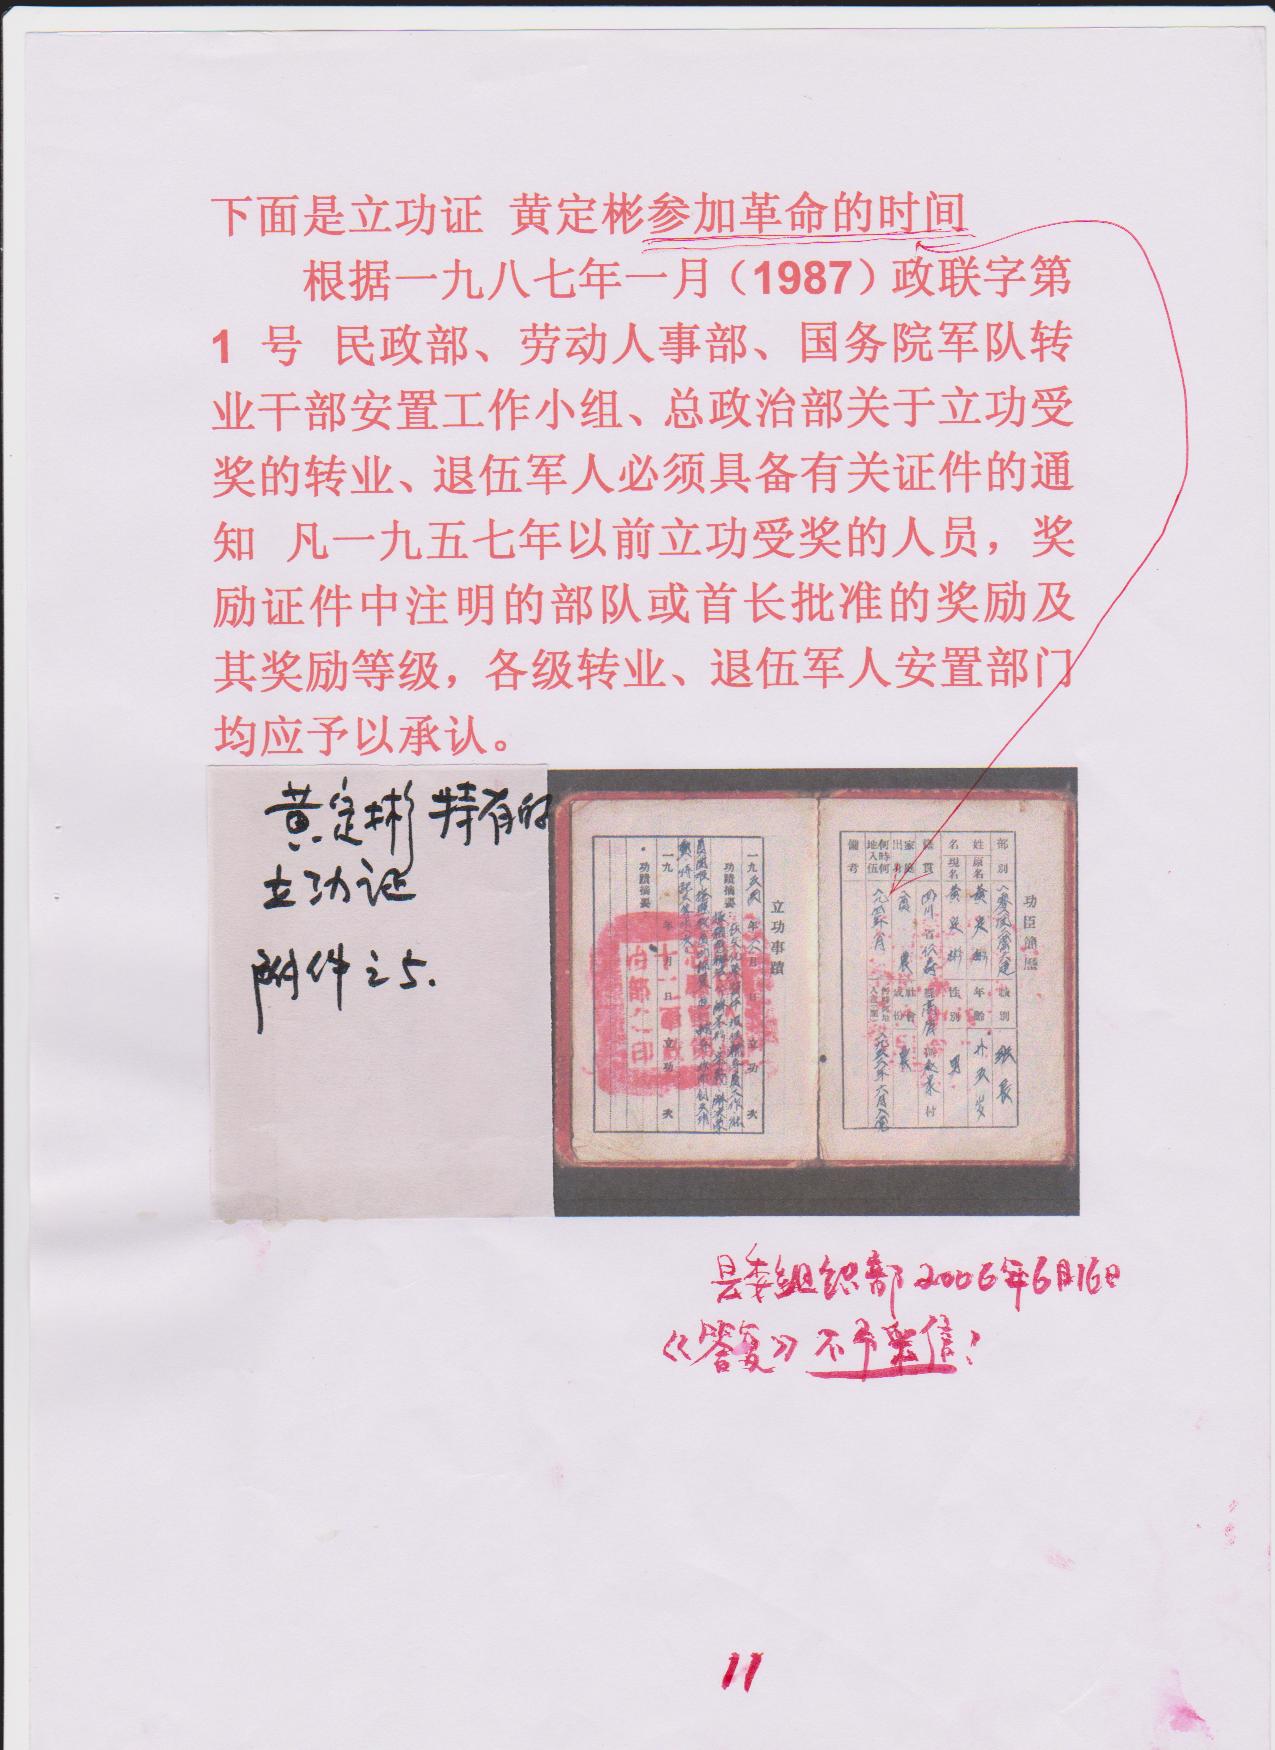 下面是立功证 黄定彬参加革命的时间
根据一九八七年一月（1987）政联字第
1 号 民政部、劳动人事部、国务院军队转
业干部安置工作小组、总政治部关于立功受
奖的转业、退伍军人必须具备有关证件的通
知 凡一九五七年以前立功受奖的人员，奖
励证件中注明的部队或首长批准的奖励及
其奖励等级，各级转业、退伍军人安置部门
均应予以承认。
黄定彬持有的
立功证
附件之5.
功臣簡歷
部別
職別
姓原名 黄定彬
年齡
名現名 黄定彬
性別 男
籍貫 四川省
村
家庭出身
社會成份
何時何地入伍
備考
立功事蹟
一九 年 月 日 立功 次
功蹟摘要：
一九 年 月 日 立功 次
功蹟摘要：
县委组织部2006年6月16日
《答复》不予采信？
11